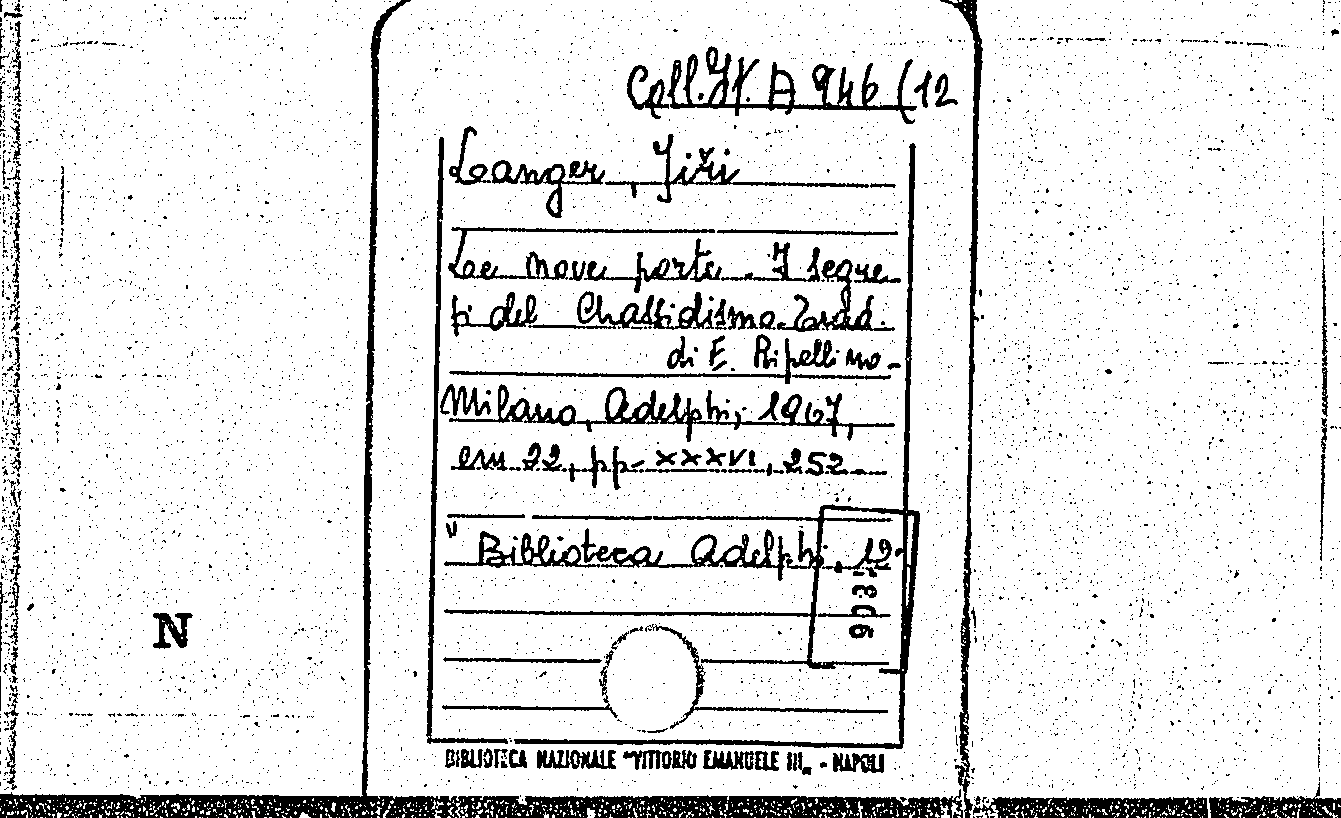 Coll. It. A 946 (12
Langer, Jiři
Le nove porte. I segre-
ti del Chassidismo. Trad.
di E. Ripellino.
Milano, Adelphi, 1967,
cm 22, pp. XXXVI, 252
" Biblioteca Adelphi, 12.
N
BIBLIOTECA NAZIONALE "VITTORIO EMANUELE III„ - NAPOLI